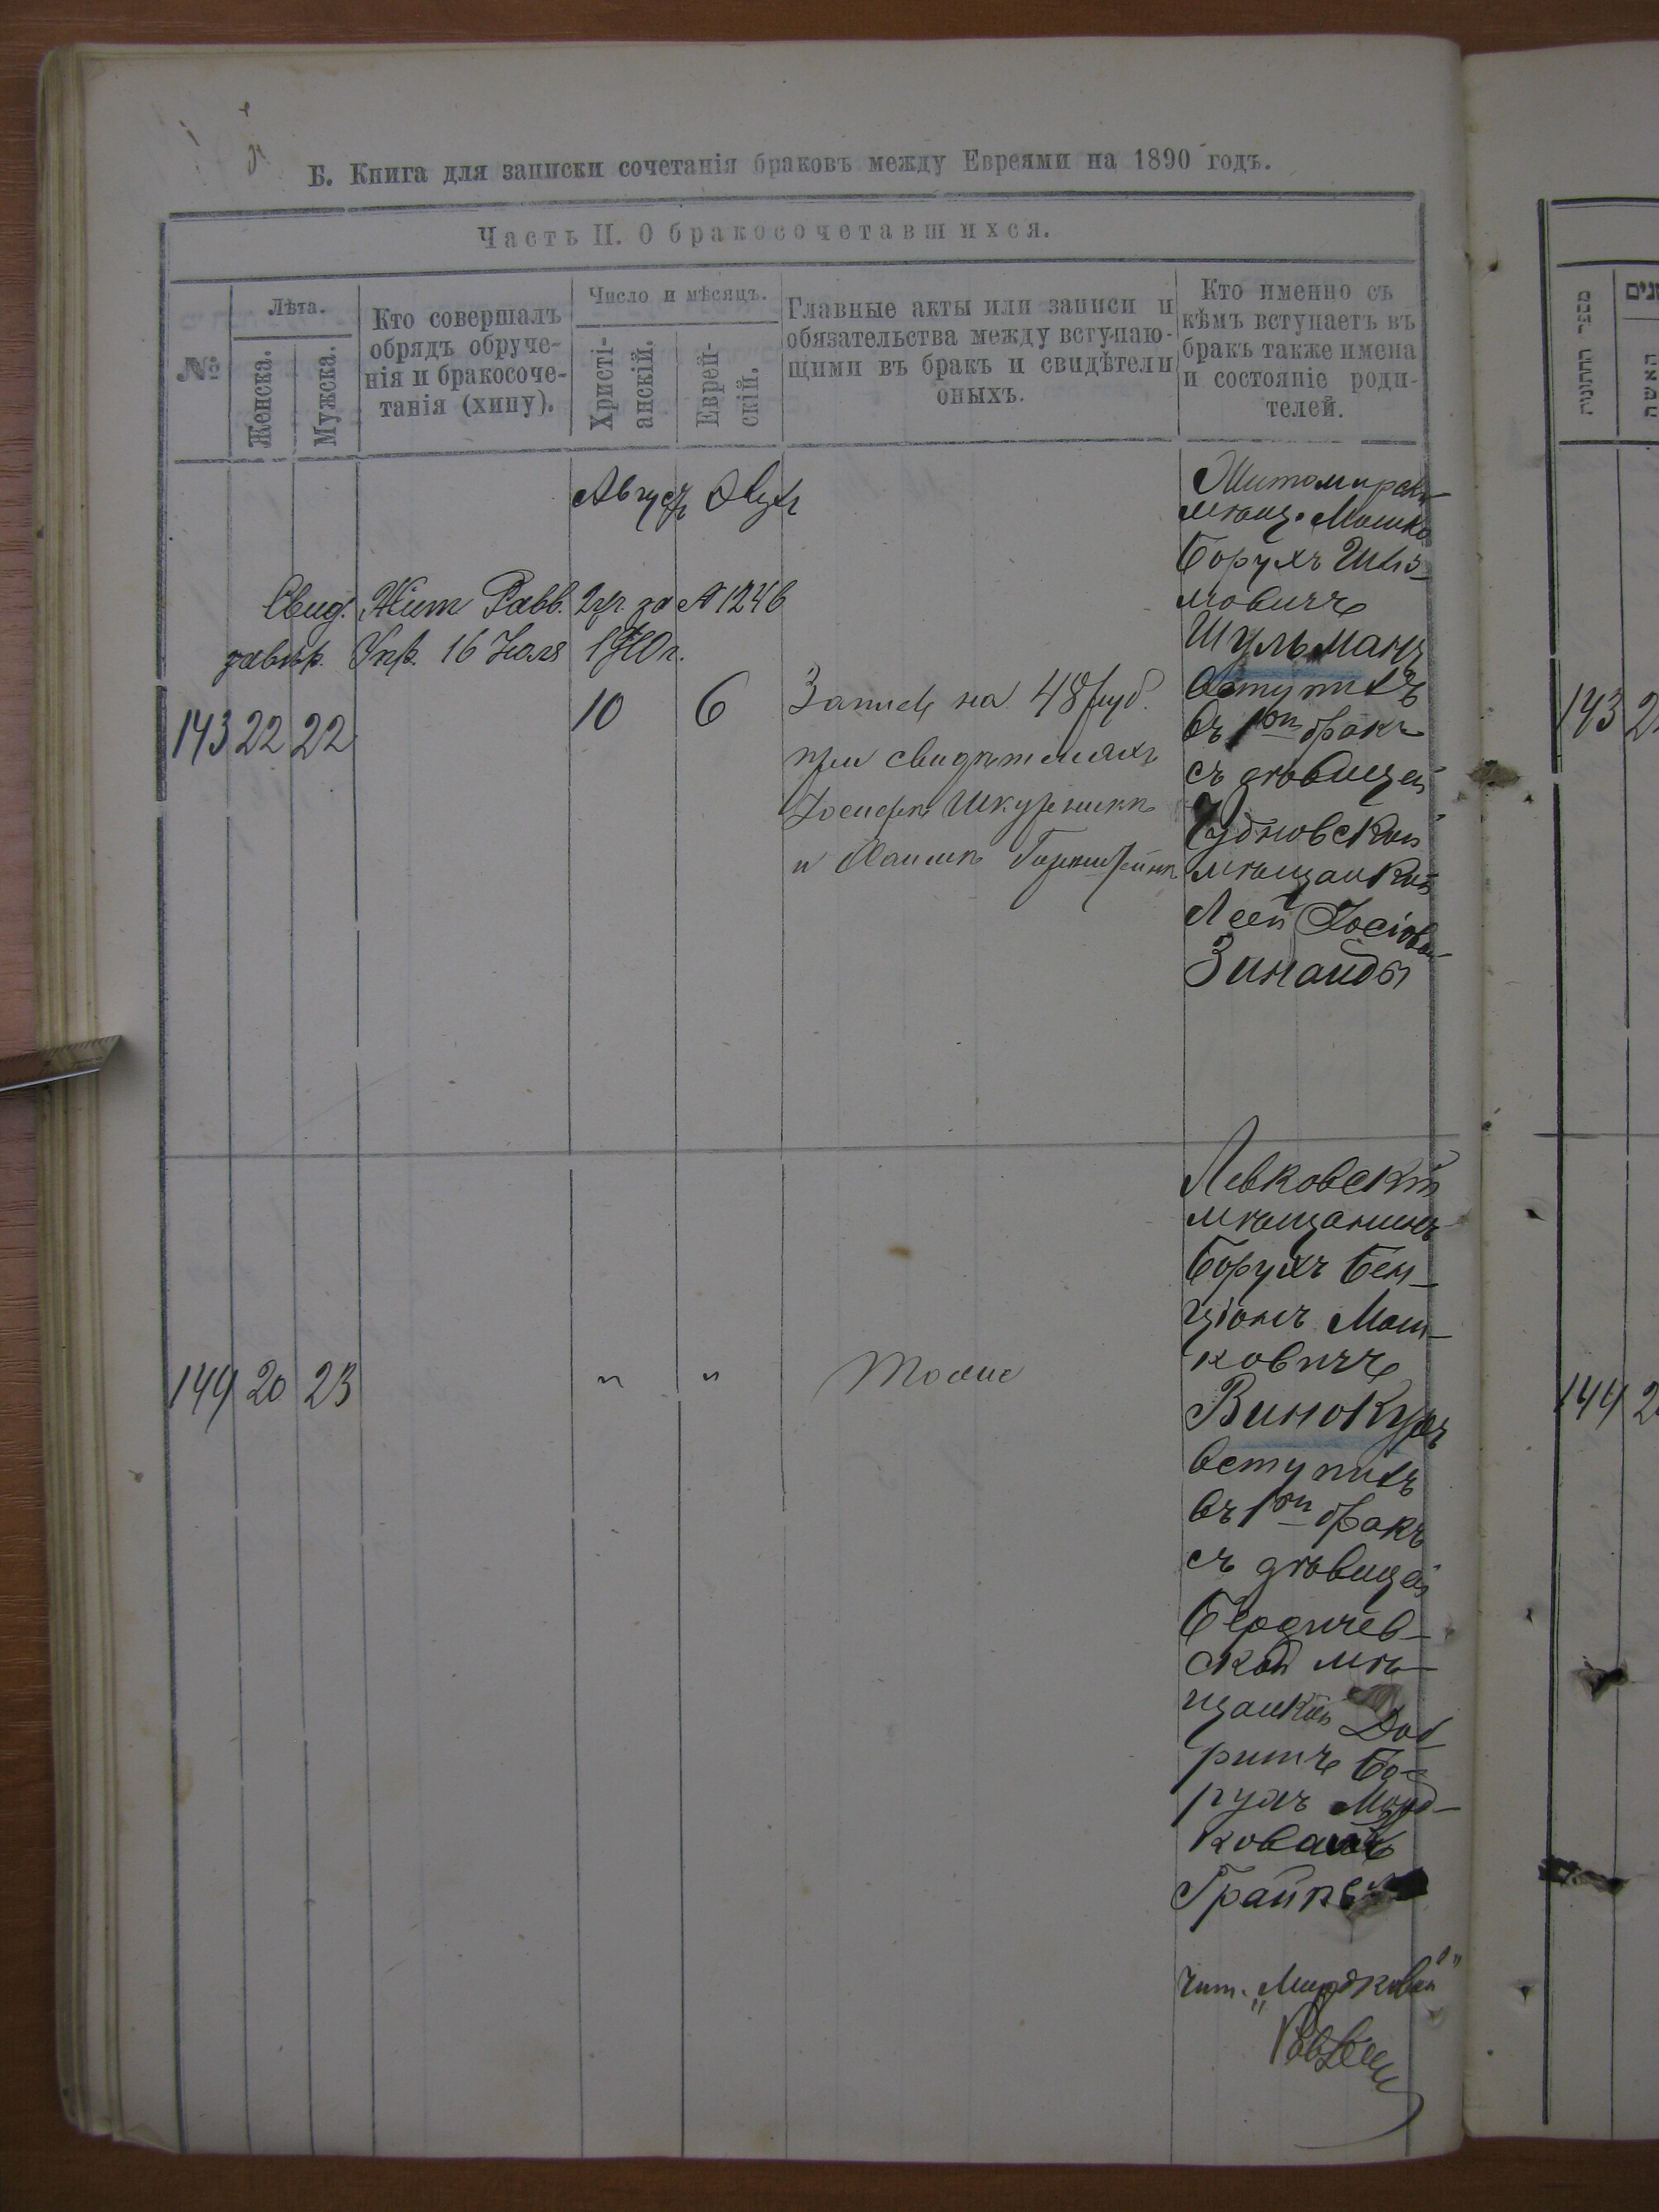 Б. Книга для записки сочетанія браковъ между Евреями на 1890 годъ.
Часть II. О бракосочетавшихся.
№
Лѣта.
Женска.
Мужска.
Кто совершалъ
обрядъ обруче-
нія и бракосоче-
танія (хипу).
Число и мѣсяцъ.
Христі-
анскій.
Еврей-
скій.
Главные акты или записи и
обязательства между вступаю-
щими въ бракъ и свидѣтели
оныхъ.
Кто именно съ
кѣмъ вступаетъ въ
бракъ также имена
и состояніе роди-
телей.
Августъ
Свид. Жит Равв. 2 уч. за № 1246
16 Іюля
143 22 22
10 6
Запись на 48 руб.
при свидѣтеляхъ
Іосифѣ Шкурникѣ
и
Житомирскій
мѣщ. Мошко
Борухъ Шлiо-
мовичъ
Шульманъ
вступилъ
въ 1ый бракъ
съ дѣвицей
Чудновской
мѣщанкой
Леей Іосiовой
Зинаиды
144 20 23
" "
Тоже
Левковскій
мѣщанинъ
Борухъ Бен-
ціонъ Мош-
ковичъ
Винокуръ
вступилъ
въ 1ый бракъ
съ дѣвицей
Бердичев-
ской мѣ-
щанкой Доб
ришъ Бо-
рухъ Морд-
ковой
чит. "Мордковой"
מספר החתונה
האשה
143 2
144 2